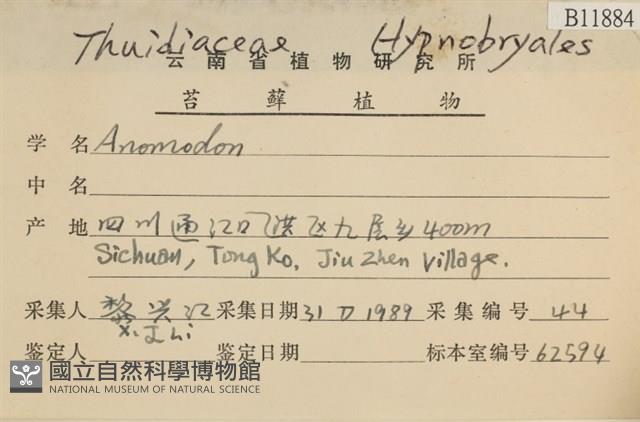 B11884
Thuidiaceae Hypnobryales
云南省植物研究所
苔藓植物
学名 Anomodon
中名
产地 四川通江口洪区九层乡400m
Sichuan, Tong Ko, Jiu Zhen Village.
采集人 黎兴江 采集日期 31 1989 采集编号 44
X. J. Li
鉴定人 鉴定日期 标本室编号 62594
國立自然科學博物館
NATIONAL MUSEUM OF NATURAL SCIENCE